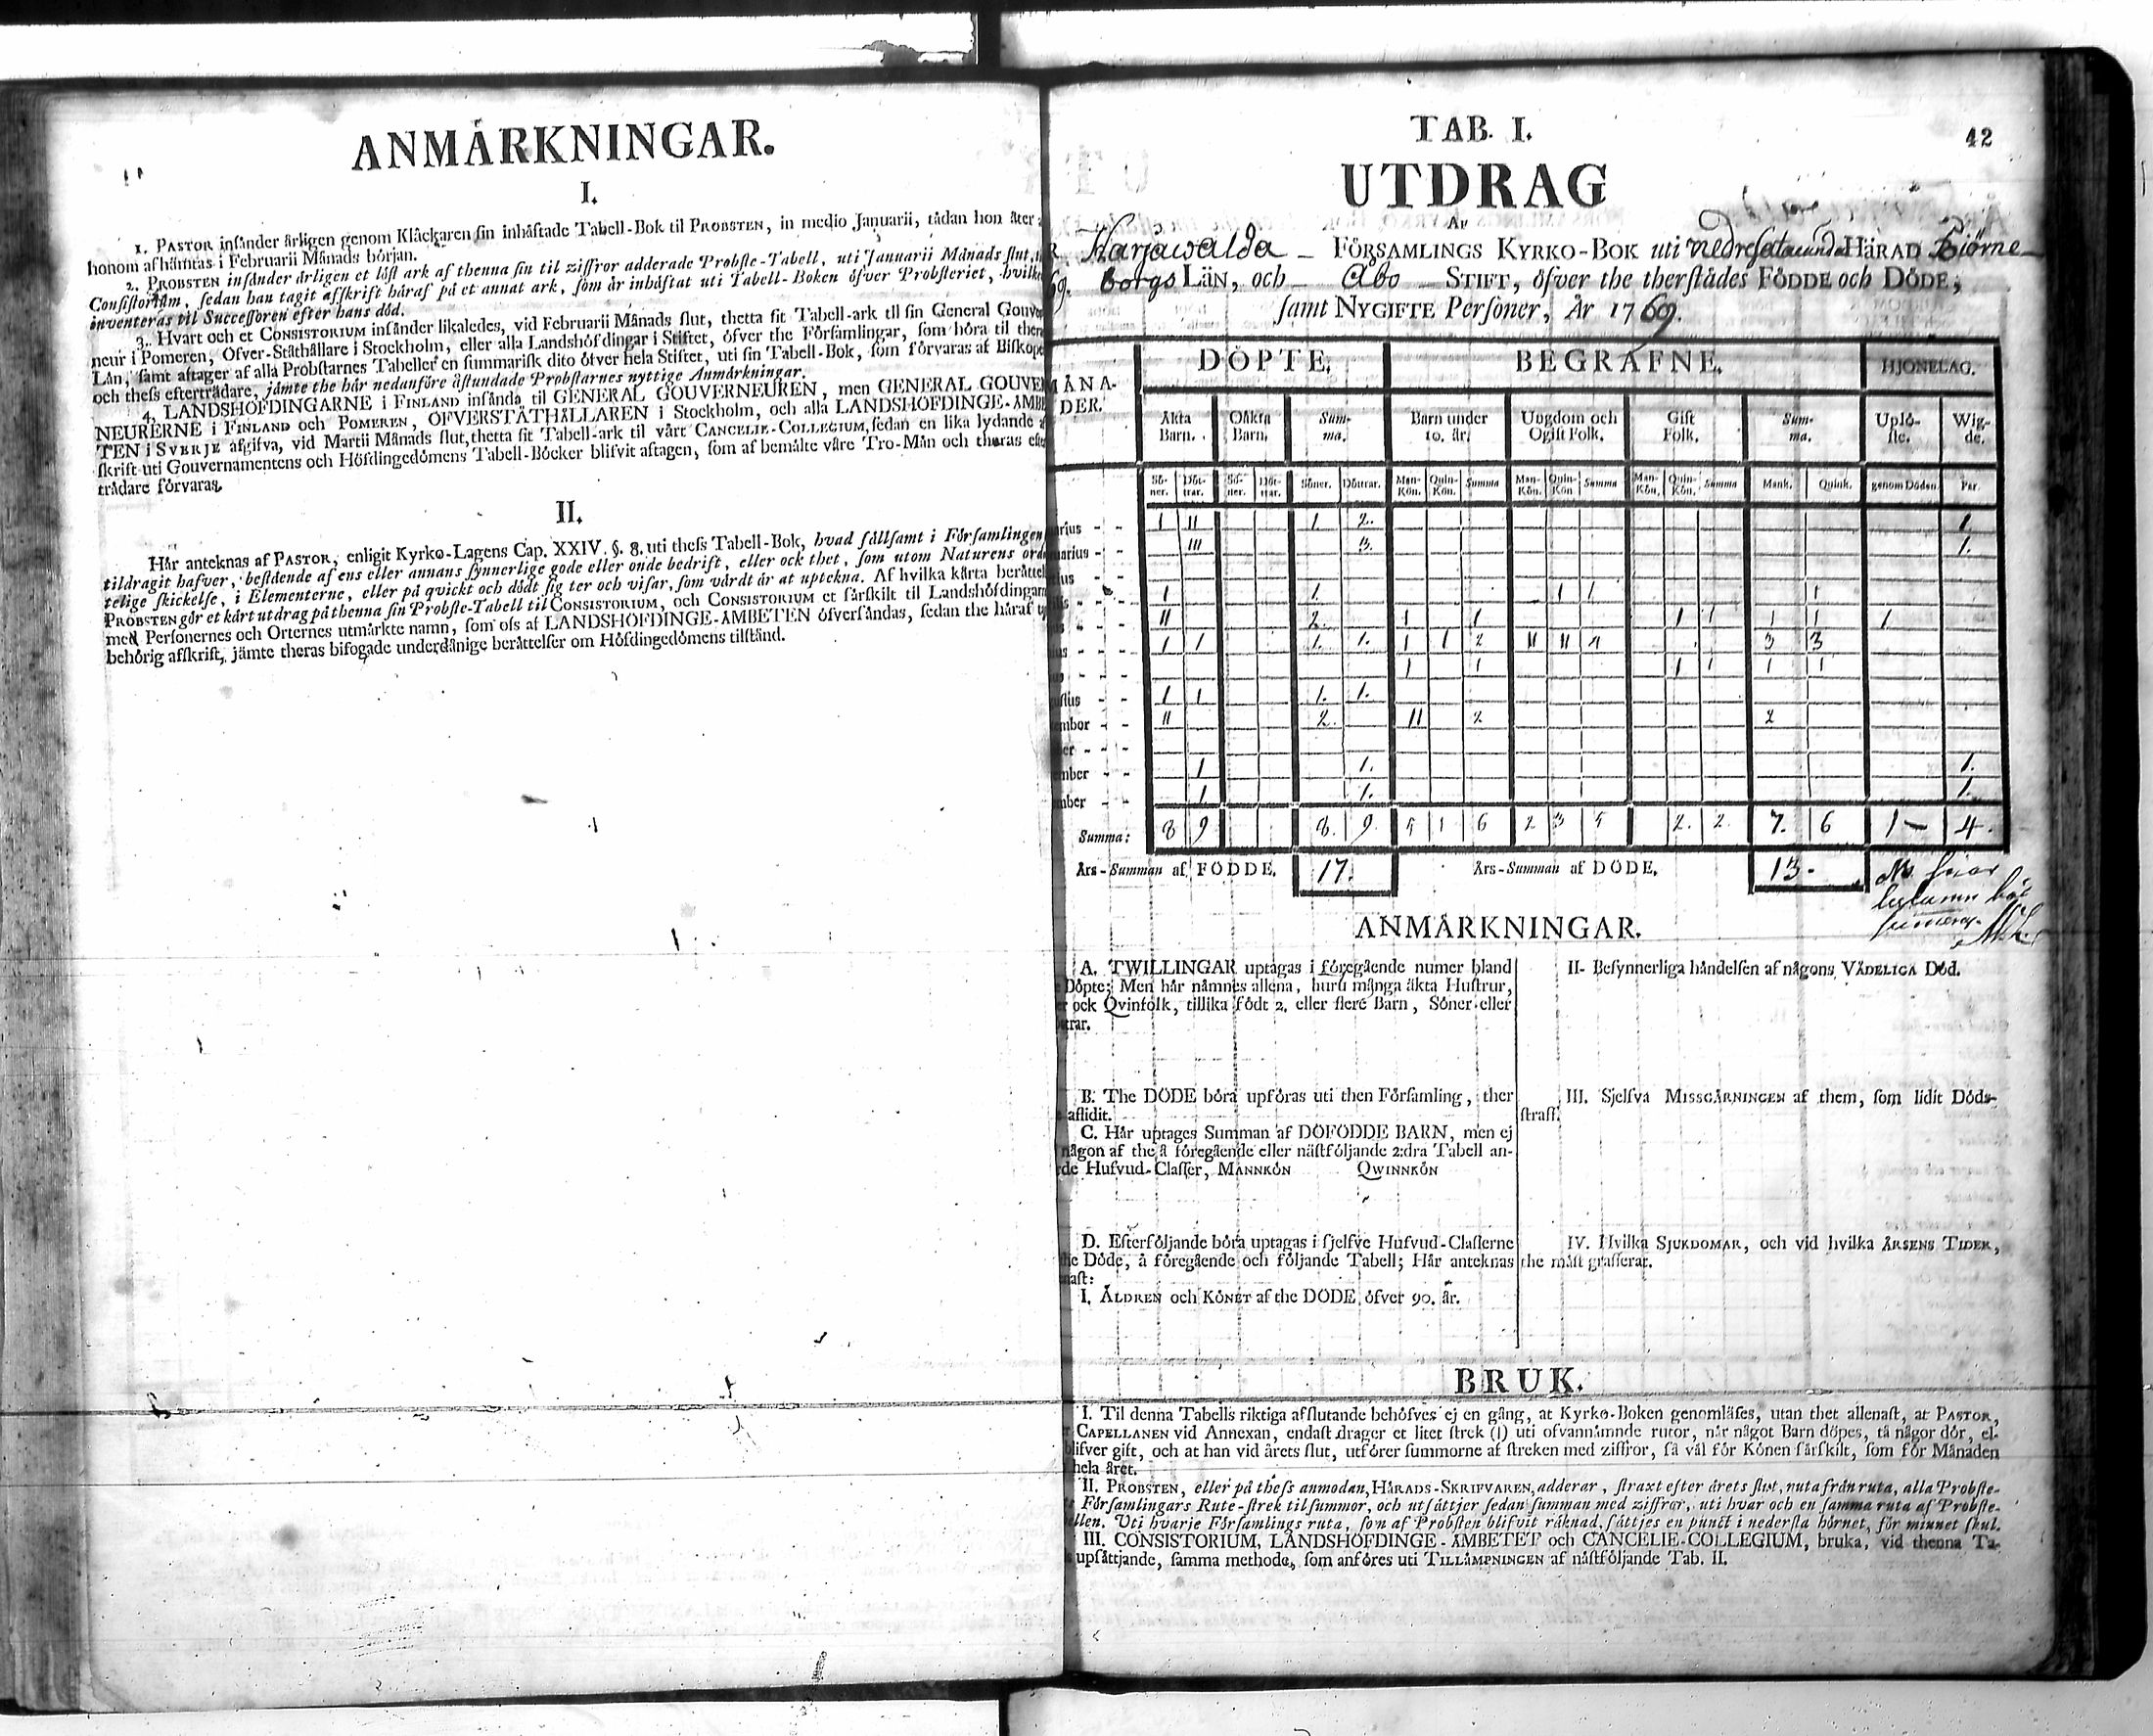 ANMÄRKNINGAR.
I.
1. PASTOR insänder årligen genom Klåckaren sin inhäftade Tabell-Bok til PROBSTEN, in medio Januarii, tådan hon åter
honom afhämtas i Februarii Månads början.
2. PROBSTEN insänder årligen et löst ark af thenna sin til ziffror adderade Probste-Tabell, uti Januarii Månads slut,
Consistorium, sedan han tagit afskrift häraf på et annat ark, som är inhäftat uti Tabell-Boken öfver Probsteriet, hvilke
inventeras til Successoren efter hans död.
3. Hvart och et CONSISTORIUM insänder likaledes, vid Februarii Månads slut, thetta sit Tabell-ark til sin General Gouver
neur i Pomeren, Öfver-Ståthållare i Stockholm, eller alla Landshöfdingar i Stiftet, öfver the Församlingar, som höra til then
Län, samt aftager af alla Probstarnes Tabeller en summarisk dito öfver hela Stiftet, uti sin Tabell-Bok, som förvaras af Biskope
och thess efterträdare, jämte the här nedanföre åstundade Probstarnes nyttige Anmärkningar.
4. LANDSHÖFDINGARNE i FINLAND insända til GENERAL GOUVERNEUREN, men GENERAL GOUVE
NEURERNE i FINLAND och POMEREN, ÖFVERSTÅTHÅLLAREN i Stockholm, och alla LANDSHÖFDINGE-ÄMBE
TEN i SVERJE afgifva, vid Martii Månads slut, thetta sit Tabell-ark til vårt CANCELIE-COLLEGIUM, sedan en lika lydande a
skrift uti Gouvernamentens och Höfdingedömens Tabell-Böcker blifvit aftagen, som af bemälte våre Tro-Män och theras efte
trädare förvaras.
II.
Här anteknas af PASTOR, enligit Kyrko-Lagens Cap. XXIV. §. 8. uti thess Tabell-Bok, hvad sällsamt i Församlingen
tildragit hafver, bestående af ens eller annans synnerlige gode eller onde bedrift, eller ock thet, som utom Naturens orde
telige skickelse, i Elementerne, eller på qvickt och dödt sig ter och visar, som värdt är at uptekna. Af hvilka kårta berättel
PROBSTEN gör et kårt utdrag på thenna sin Probste-Tabell til CONSISTORIUM, och CONSISTORIUM et särskilt til Landshöfdingarn
med Personernes och Orternes utmärkte namn, som oss af LANDSHÖFDINGE-ÄMBETEN öfversändas, sedan the häraf
behörig afskrift, jämte theras bifogade underdånige berättelser om Höfdingedömens tilstånd.
TAB. I.
42
UTDRAG
Af
Harjawalda FÖRSAMLINGS KYRKO-BOK uti nedre satacunda HÄRAD Biörne-
borgs LÄN, och Åbo STIFT, öfver the therstädes FÖDDE och DÖDE,
samt NYGIFTE Personer, År 1769.
MÅNA-DER. DÖPTE. BEGRAFNE. HJONELAG.
Äkta Barn. Oäkta Barn. Sum-ma. Barn under 10. år. Ungdom och Ogift Folk. Gift Folk. Sum-ma. Uplö-ste. Wig-de.
Sö-ner. Döt-trar. Sö-ner. Döt-trar. Söner. Döttrar. Man-Kön. Quin-Kön. Summa Man-Kön. Quin-Kön Summa Man-Kön. Quin-Kön. Summa Mank. Quink. genom Döden. Par.
arius - - I II 1. 2. 1.
uarius - - III 3. 1.
tius - -
ilis - - I 1. I 1 1
us - - II 2. I 1 I 1 1 1 1
ius - - I I 1. 1. I I 2 II II 4 3 3
us - - I 1 I 1 1 1
ustus - - I I 1. 1.
tember - - II 2. II 2 2
ber - - -
ember - - I 1. 1.
mber - - I 1. 1.
Summa: 8 9 8. 9. 5 1 6 2 3 5 2. 2. 7. 6 1 4.
Års-Summan af FÖDDE. 17. Års-Summan af DÖDE. 13.
ANMÄRKNINGAR.
A. TWILLINGAR uptagas i föregående numer bland
Döpte; Men här nämnes allena, huru många äkta Hustrur,
ock Qvinfolk, tillika födt 2. eller flere Barn, Söner eller
trar.
B. The DÖDE böra upföras uti then Församling, ther
aflidit.
C. Här uptages Summan af DÖFÖDDE BARN, men ej
någon af the å föregående eller nästföljande 2:dra Tabell an-
de Hufvud-Classer, MANNKÖN QWINNKÖN
D. Efterföljande böra uptagas i sjelfve Hufvud-Classerne
Döde, å föregående och följande Tabell; Här anteknas
nast:
I. ÅLDREN och KÖNET af the DÖDE öfver 90. år.
II- Besynnerliga händelsen af någons VÅDELIGA Död.
III. Sjelfva MISSGÄRNINGEN af them, som lidit Döds-
straff.
IV. Hvilka SJUKDOMAR, och vid hvilka ÅRSENS TIDER,
the mäst grasserat.
BRUK.
I. Til denna Tabells riktiga afslutande behöfves ej en gång, at Kyrko-Boken genomläses, utan thet allenast, at PASTOR,
CAPELLANEN vid Annexan, endast drager et litet strek (|) uti ofvannämnde rutor, när något Barn döpes, tå någor dör, el-
blifver gift, och at han vid årets slut, utförer summorne af streken med ziffror, så väl för Könen särskilt, som för Månaden
hela året.
II. PROBSTEN, eller på thess anmodan, HÄRADS-SKRIFVAREN, adderar, straxt efter årets slut, ruta från ruta, alla Probste-
Församlingars Rute-strek til summor, och utsättjer sedan summan med ziffror, uti hvar och en samma ruta af Probste-
ellen. Uti hvarje Församlings ruta, som af Probsten blifvit räknad, sättjes en punct i nedersta hörnet, för minnet skul.
III. CONSISTORIUM, LANDSHÖFDINGE-ÄMBETET och CANCELIE-COLLEGIUM, bruka, vid thenna Ta-
upsättjande, samma methode, som anföres uti TILLÄMPNINGEN af nästföljande Tab. II.